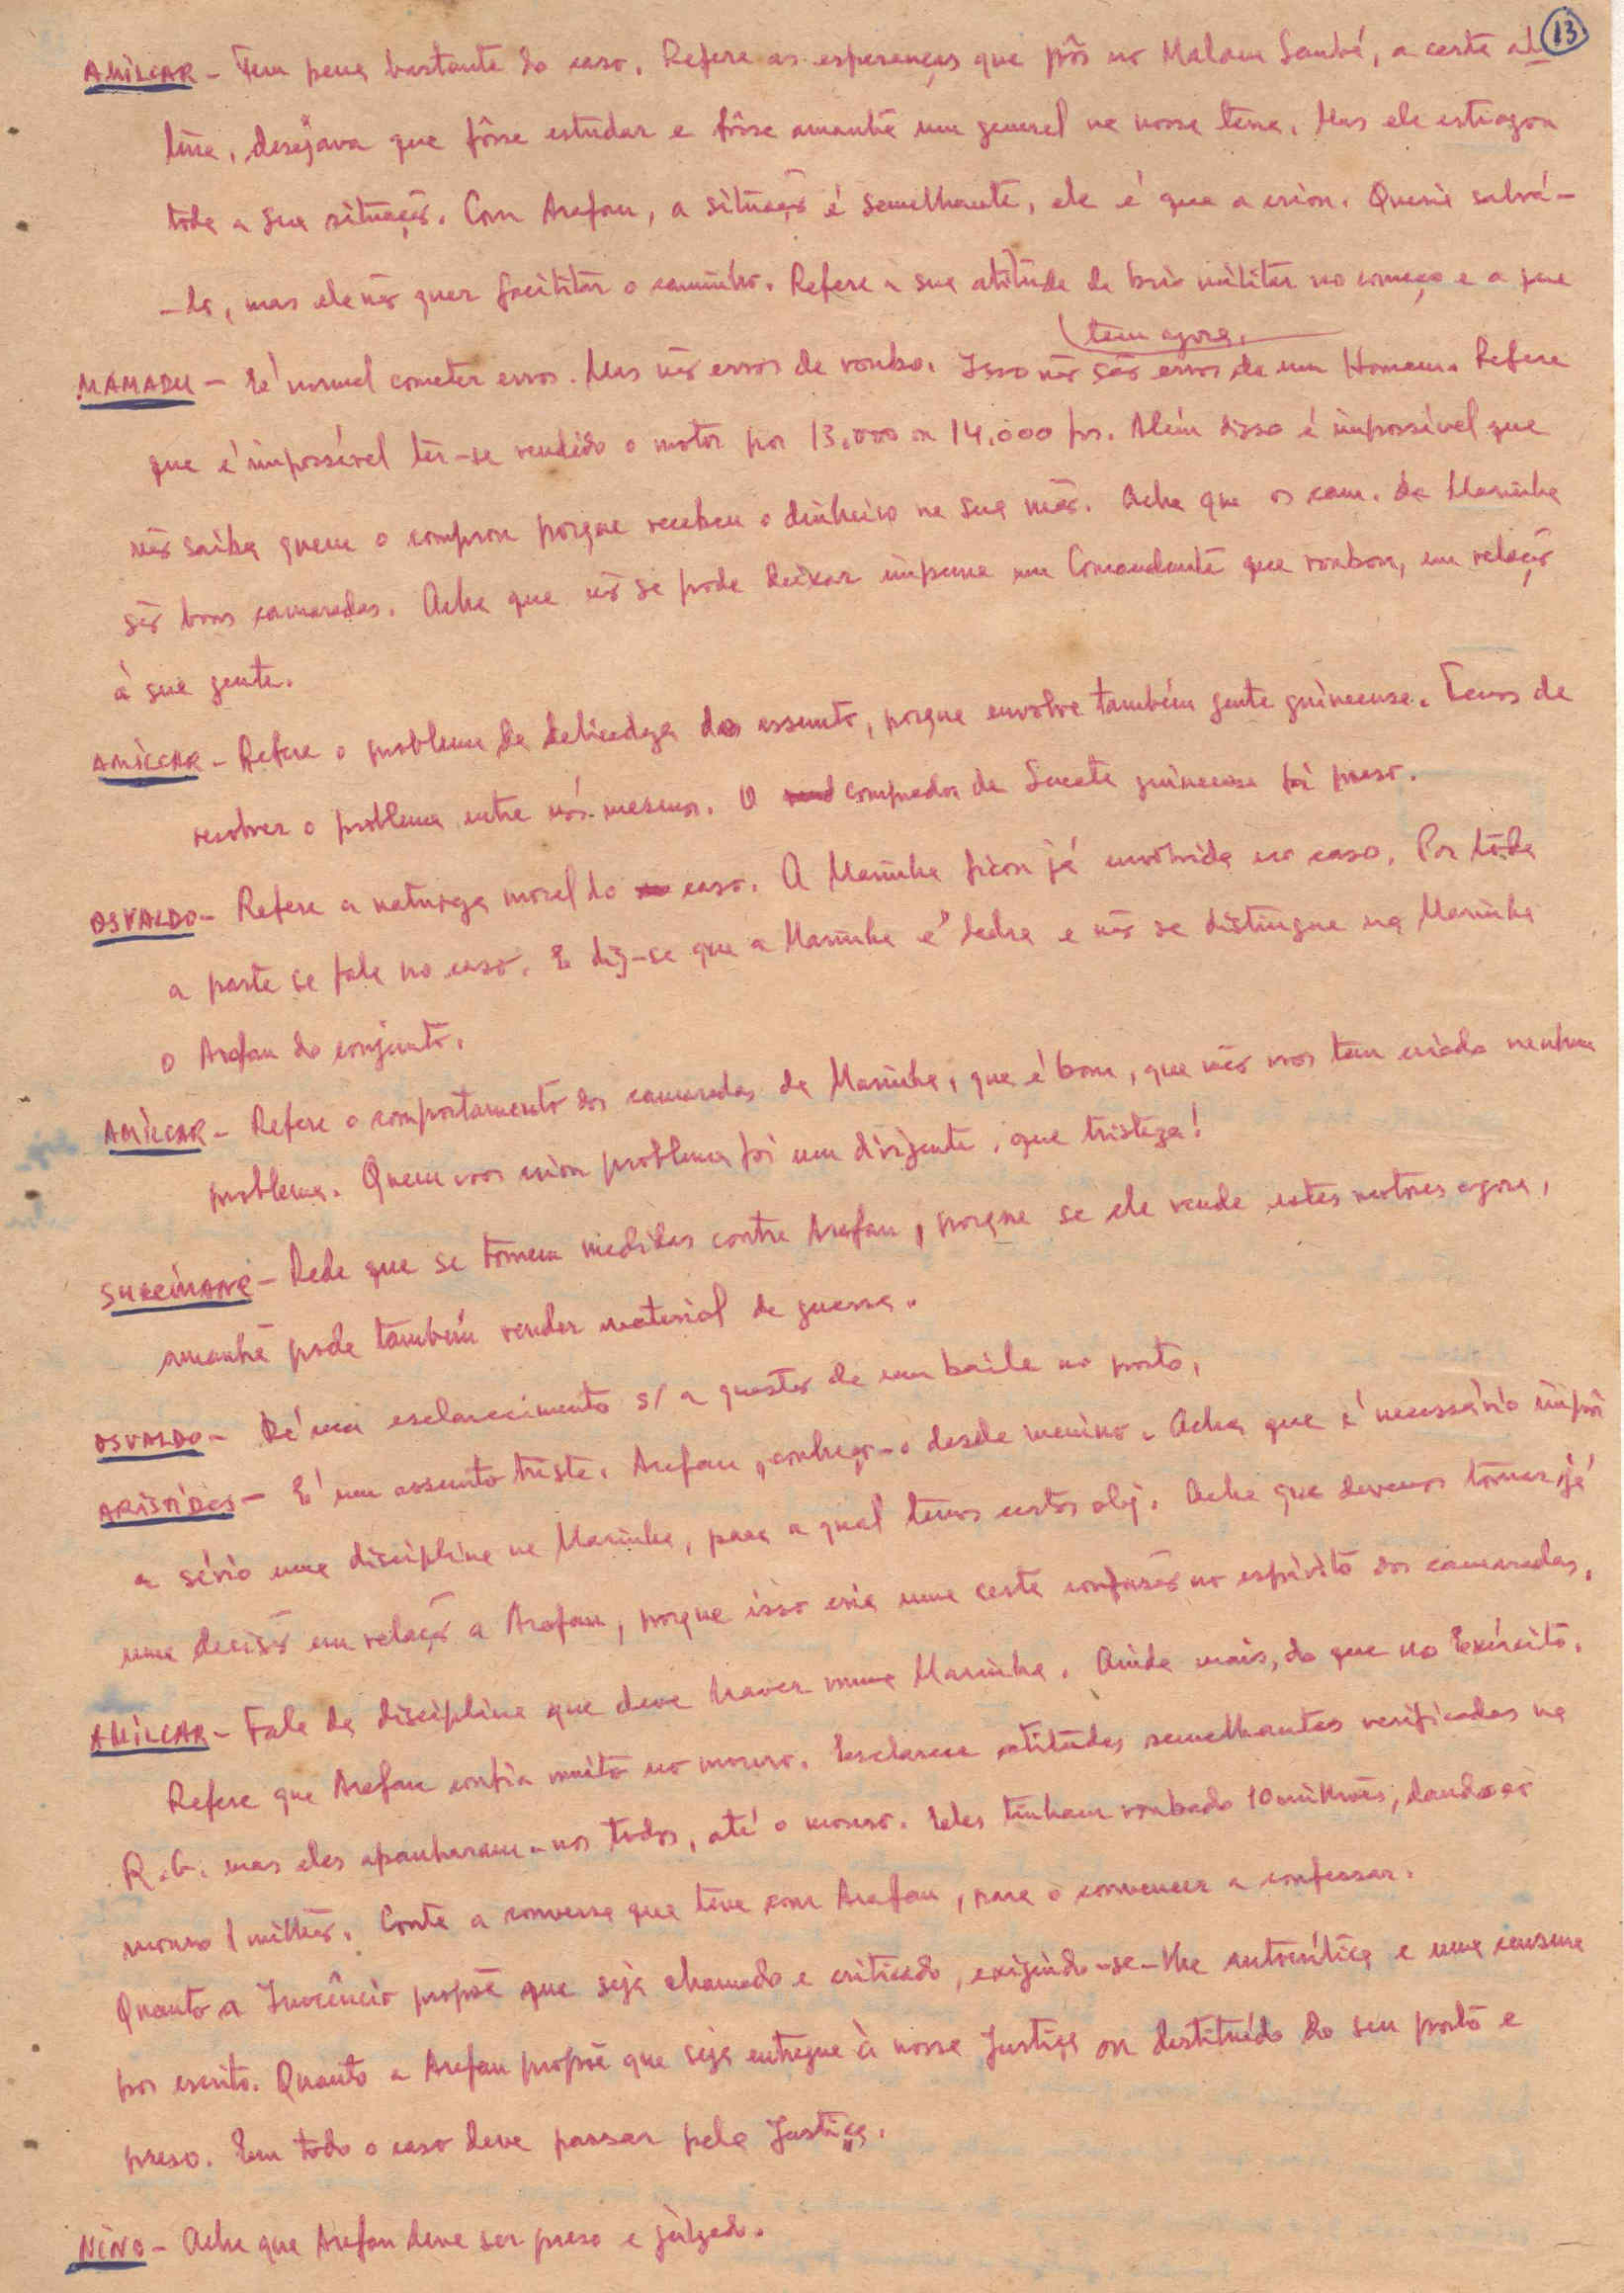 13
AMÍLCAR - Tem pena bastante do caso. Refere as esperanças que pôs no Malam Sambú, a certa al-
tura, desejava que fôsse estudar e fôsse amanhã um general na nossa terra. Mas ele estragou
toda a sua situação. Com Arafam, a situação é semelhante, ele é que a criou. Queria salvá-
-lo, mas ele não quer facilitar o caminho. Refere a sua atitude de brio militar no começo e a que
tem agora.
MAMADU - É normal cometer erros. Mas não erros de roubo. Isso não são erros de um Homem. Refere
que é impossível ter-se vendido o motor por 13.000 ou 14.000 frs. Além disso é impossível que
não saiba quem o comprou porque recebeu o dinheiro na sua mão. Acha que os cam. da Marinha
são bons camaradas. Acha que não se pode deixar impune um Comandante que roubou, em relação
à sua gente.
AMÍLCAR - Refere o problema da delicadeza do assunto, porque envolve também gente guineense. Temos de
resolver o problema entre nós mesmos. O comprador de Sucata guineense foi preso.
OSVALDO - Refere a natureza moral do caso. A Marinha ficou já envolvida no caso. Por toda
a parte se fala no caso. E diz-se que a Marinha é ladra e não se distingue na Marinha
o Arafam do conjunto.
AMÍLCAR - Refere o comportamento dos camaradas da Marinha, que é bom, que não nos tem criado nenhum
problema. Quem nos criou problema foi um dirigente, que tristeza!
SULEIMANE - Pede que se tomem medidas contra Arafam, porque se ele vende estes motores agora,
amanhã pode também vender material de guerra.
OSVALDO - Dá um esclarecimento s/ a questão de um baile no porto.
ARISTIDES - É um assunto triste. Arafam, conheço-o desde menino. Acha que é necessário impôr
a sério uma disciplina na Marinha, para a qual temos certos obj. Acha que devemos tomar já
uma decisão em relação a Arafam, porque isso cria uma certa confusão no espírito dos camaradas.
AMÍLCAR - Fala da disciplina que deve haver numa Marinha. Ainda mais, do que no Exército.
Refere que Arafam confia muito no mouro. Esclarece atitudes semelhantes verificadas na
R.G. mas eles apanharam-nos todos, até o mouro. Eles tinham roubado 10 milhões, dando ao
mouro 1 milhão. Conta a conversa que teve com Arafam, para o convencer a confessar.
Quanto a Inocêncio propõe que seja chamado e criticado, exigindo-se-lhe autocrítica e uma censura
por escrito. Quanto a Arafam propõe que seja entregue à nossa Justiça ou destituído do seu posto e
preso. Em todo o caso deve passar pela Justiça.
NINO - Acha que Arafam deve ser preso e julgado.